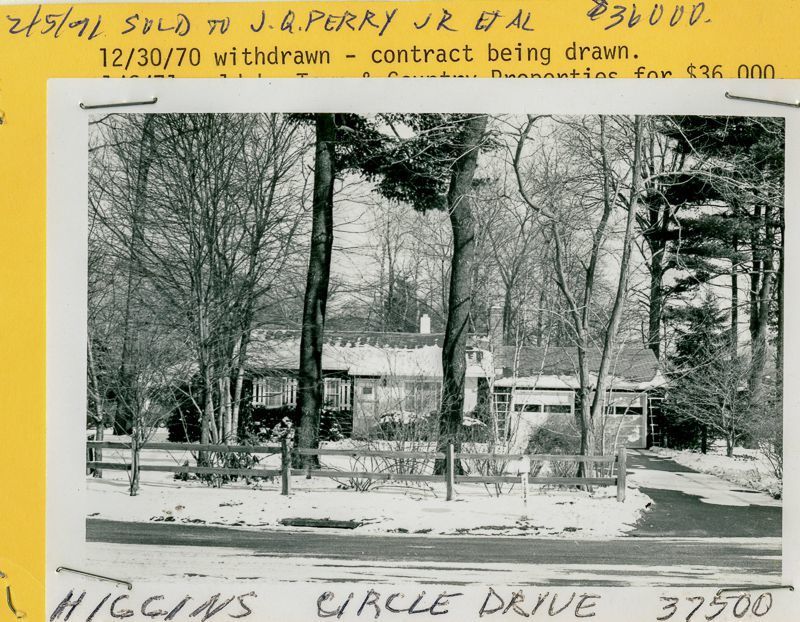 2/5/71 SOLD TO J.Q.PERRY JR ET AL $36000.
12/30/70 withdrawn - contract being drawn.
Town & Country Properties for $36,000.
HIGGINS CIRCLE DRIVE 37500